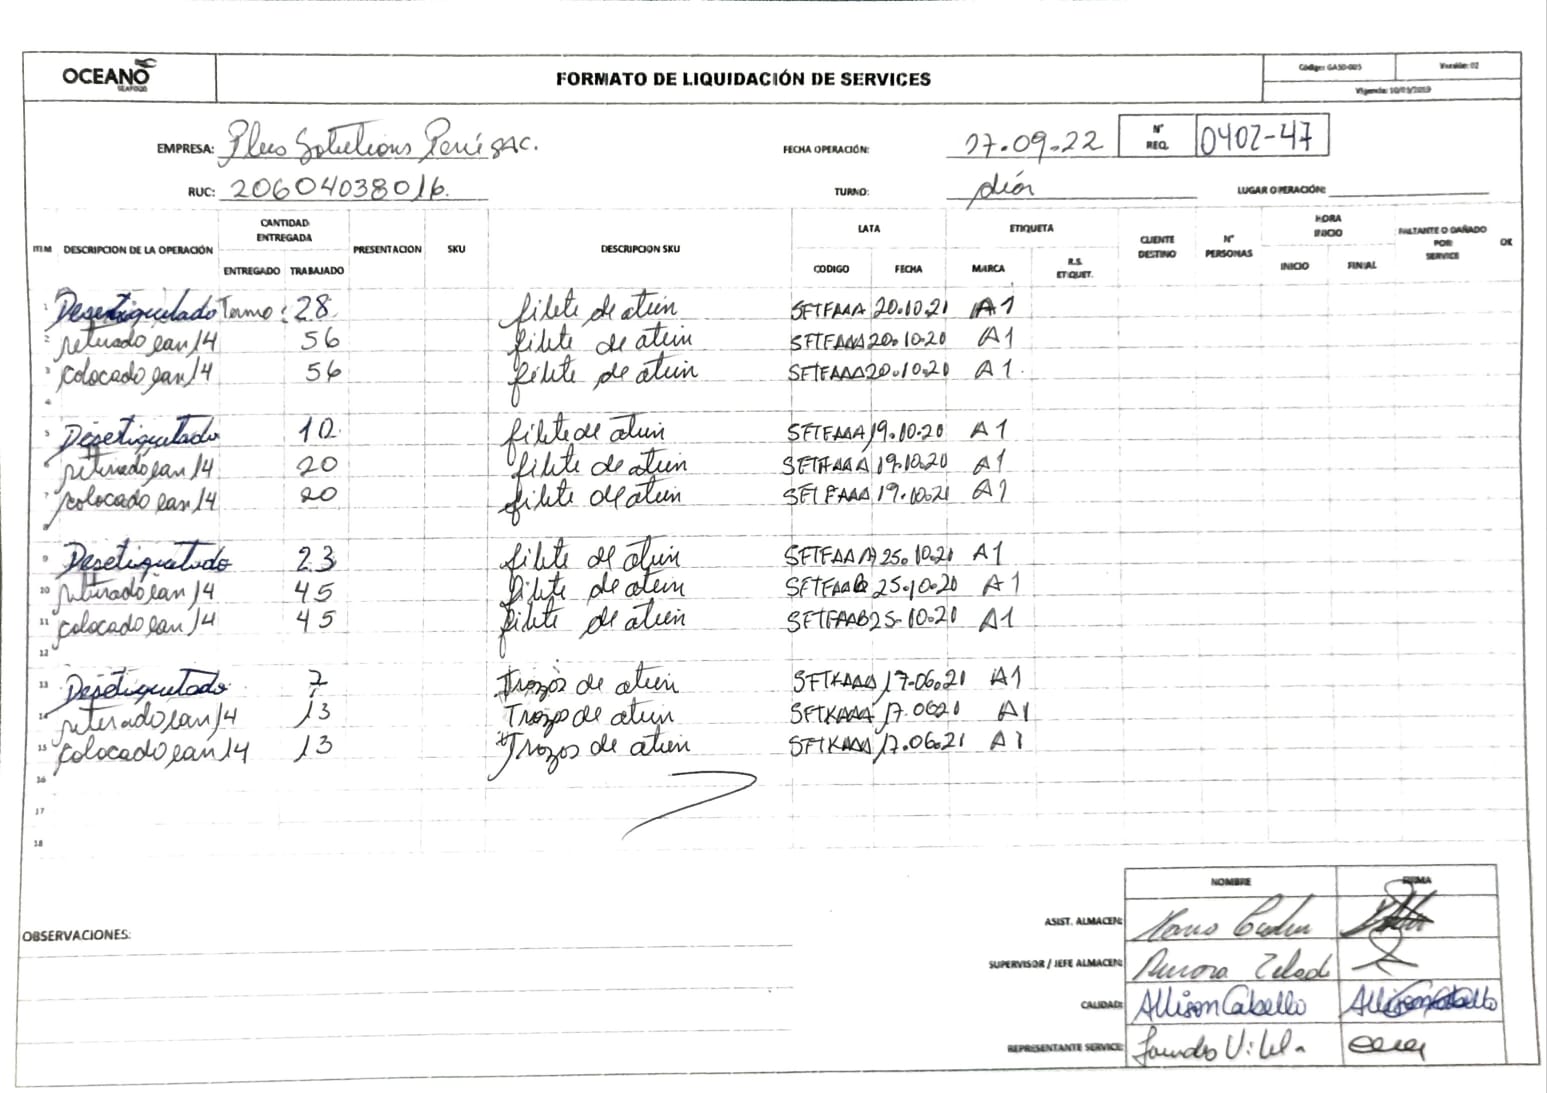 OCEANO
SEAFOOD
FORMATO DE LIQUIDACIÓN DE SERVICES
Código: GASO-005 Versión: 02
Vigencia: 10/05/2019
EMPRESA: Plus Solutions Perú SAC. FECHA OPERACIÓN: 27.09.22 N° REQ. 0402-47
RUC: 20604038016. TURNO: día LUGAR OPERACIÓN:
ITEM DESCRIPCION DE LA OPERACIÓN CANTIDAD ENTREGADA PRESENTACION SKU DESCRIPCION SKU LATA ETIQUETA CLIENTE DESTINO N° PERSONAS HORA INICIO FALTANTE O DAÑADO POR SERVICE OK
ENTREGADO TRABAJADO CODIGO FECHA MARCA R.S. ETIQUET. INICIO FINIAL
1 Desetiquetado Termo: 28 filete de atún SFTFAAA 20.10.21 A1
2 retirado ean 14 56 filete de atún SFTFAAA 20.10.20 A1
3 colocado ean 14 56 filete de atún SFTFAAA 20.10.20 A1.
4
5 Desetiquetado 10 filete de atún SFTFAAA 19.10.20 A1
6 retirado ean 14 20 filete de atún SFTFAAA 19.10.20 A1
7 colocado ean 14 20 filete de atún SFTFAAA 19.10.21 A1
8
9 Desetiquetado 23 filete de atún SFTFAAA 25.10.21 A1
10 retirado ean 14 45 filete de atún SFTFAAB 25.10.20 A1
11 colocado ean 14 45 filete de atún SFTFAAB 25.10.20 A1
12
13 Desetiquetado 7 Trozos de atún SFTKAAA 17.06.21 A1
14 retirado ean 14 13 Trozo de atún SFTKAAA 17.0620 A1
15 colocado ean 14 13 Trozos de atún SFTKAAA 17.06.21 A1
16
17
18
NOMBRE FIRMA
OBSERVACIONES:
ASIST. ALMACEN:
SUPERVISOR / JEFE ALMACEN: Aurora
CALIDAD: Allison Cabello Allison Cabello
REPRESENTANTE SERVICE: Lourdes Vilela